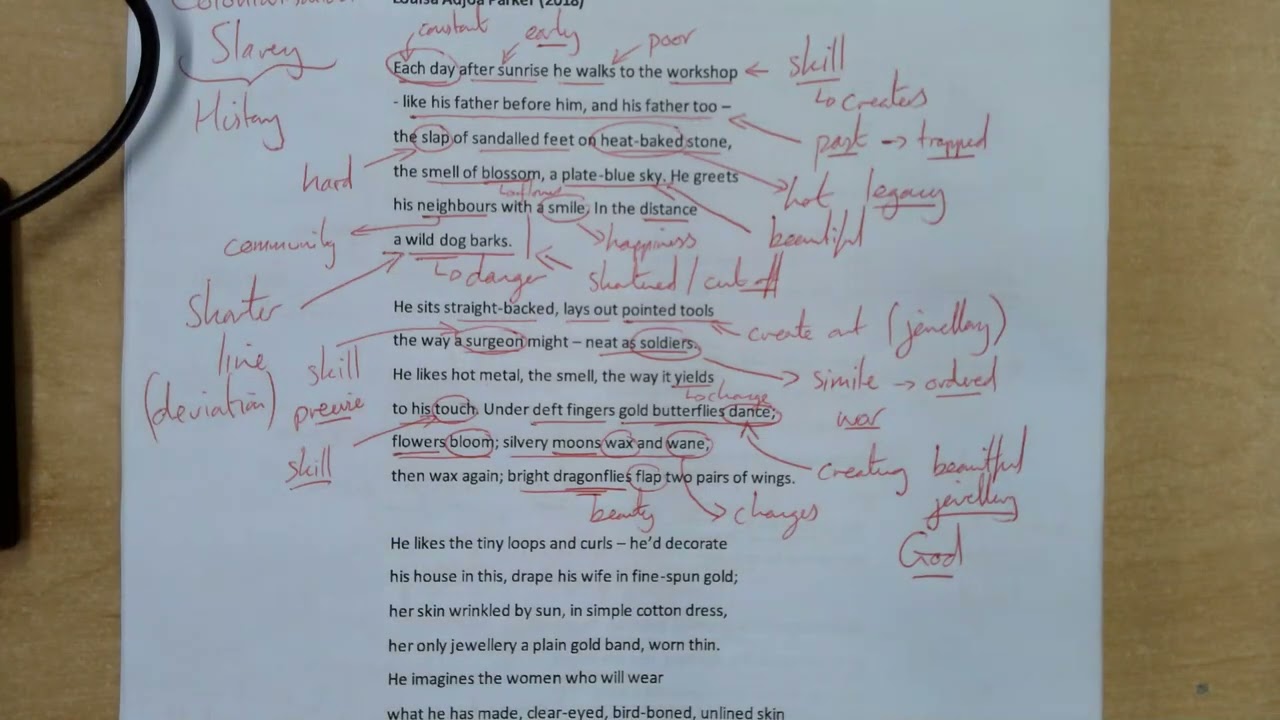 Louisa Adjoa Parker (2018)
Slavery
History
constant
early
poor
Each day after sunrise he walks to the workshop
skill
creates
- like his father before him, and his father too –
past → trapped
the slap of sandalled feet on heat-baked stone,
hard
the smell of blossom, a plate-blue sky. He greets
hot legacy
his neighbours with a smile. In the distance
community
happiness
beautiful
a wild dog barks.
danger
shattered / cut off
shorter
line
(deviation)
He sits straight-backed, lays out pointed tools
create art (jewellery)
the way a surgeon might – neat as soldiers.
skill
precise
simile → ordered
war
He likes hot metal, the smell, the way it yields
change
to his touch. Under deft fingers gold butterflies dance;
skill
flowers bloom; silvery moons wax and wane,
creating beautiful
jewellery
God
then wax again; bright dragonflies flap two pairs of wings.
beauty
changes
He likes the tiny loops and curls – he'd decorate
his house in this, drape his wife in fine-spun gold;
her skin wrinkled by sun, in simple cotton dress,
her only jewellery a plain gold band, worn thin.
He imagines the women who will wear
what he has made, clear-eyed, bird-boned, unlined skin